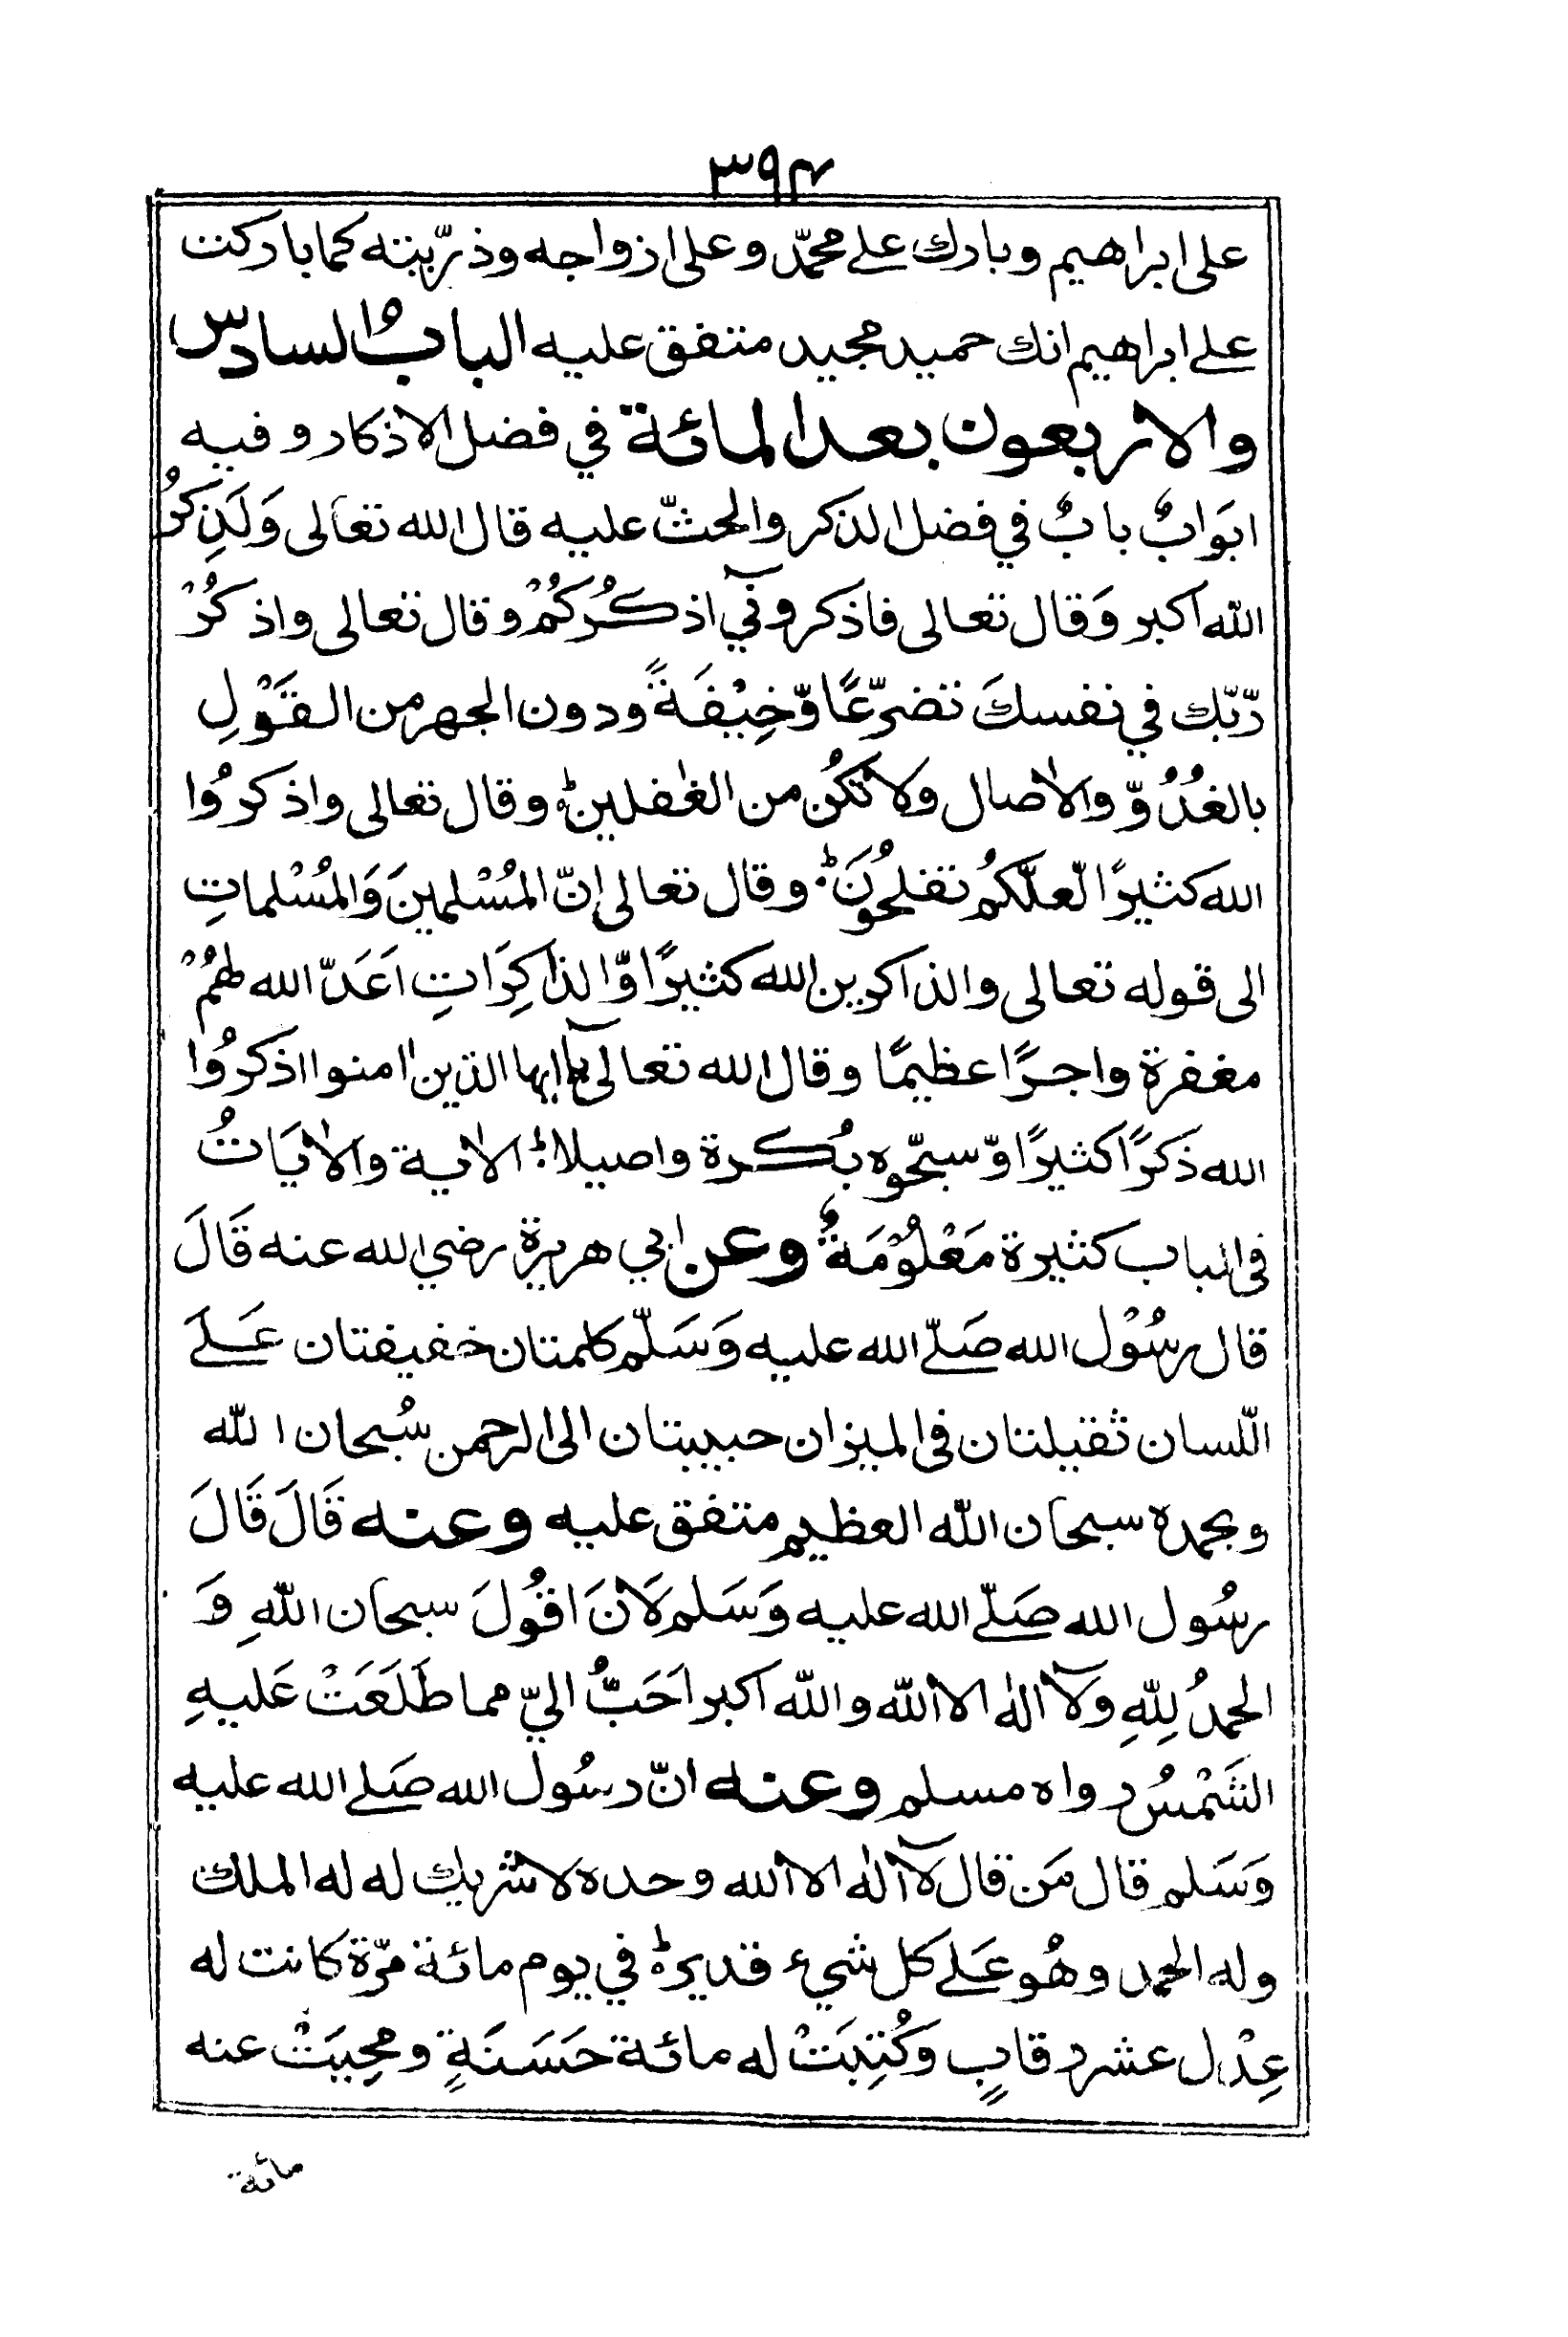 ٣٩٤
على ابراهيم وبارك علے محمّد وعلى ازواجه وذرّيته كما باركت
علے ابراهيم انك حميد مجيد متفق عليه البابُ السادس
والاربعون بعد المائة في فضل الاذكار وفيه
ابوَابٌ بابٌ في فضل الذكر والحثّ عليه قال الله تعالى وَلَذِكرُ
اللّه اكبر وَقال تعالى فاذكروني اذكُركُمْ وقال تعالى واذكُرْ
رّبّك في نفسكَ تضرّعًا وّخِيْفَةً ودون الجهر من القَوْلِ
بالغُدُوّ والاٰصال ولا تكُن من الغٰفلين وقال تعالى واذكرُوا
الله كثيرًا لّعلّكُم تفلحُونَ وقال تعالى انّ المُسْلمينَ وَالمُسْلماتِ
الى قوله تعالى والذاكرين الله كثيرًا وّالذاكِرَاتِ اَعَدّ الله لهُمْ
مغفرة واجرًا عظيمًا وقال الله تعالى يآايها الذين اٰمنوا اذكرُوا
الله ذكرًا كثيرًا وّسبّحوه بُكرة واصيلا الاٰية والاٰيَاتُ
فى الباب كثيرة مَعْلُوْمَةٌ وعن ابي هريرة رضي الله عنه قَالَ
قال رسُوْل الله صَلّے الله عليه وَسَلّم كلمتان خفيفتان عَلَے
اللّسان ثقيلتان فى الميزان حبيبتان الى الرحمن سُبحان اللّه
وبحمده سبحان اللّه العظيم متفق عليه وعنه قَالَ قَالَ
رسُول الله صَلّے الله عليه وَسَلم لَانَ اقُولَ سبحان اللّهِ وَ
الحمدُ لِلّهِ وَلآ الٰه الا اللّه واللّه اكبر اَحَبُّ اليّ مما طَلَعَتْ عَليهِ
الشَمْسُ رواه مسلم وعنه انّ رسُول الله صَلے الله عليه
وَسَلم قال مَن قال لآ الٰه الا الله وحده لا شريك له له الملك
وله الحمد وهُو عَلے كل شيء قدير في يوم مائة مرّة كانت له
عِدْل عشر رقابٍ وَكُتِبَتْ له مائة حَسَنَةٍ ومحِيَتْ عنه
مائة